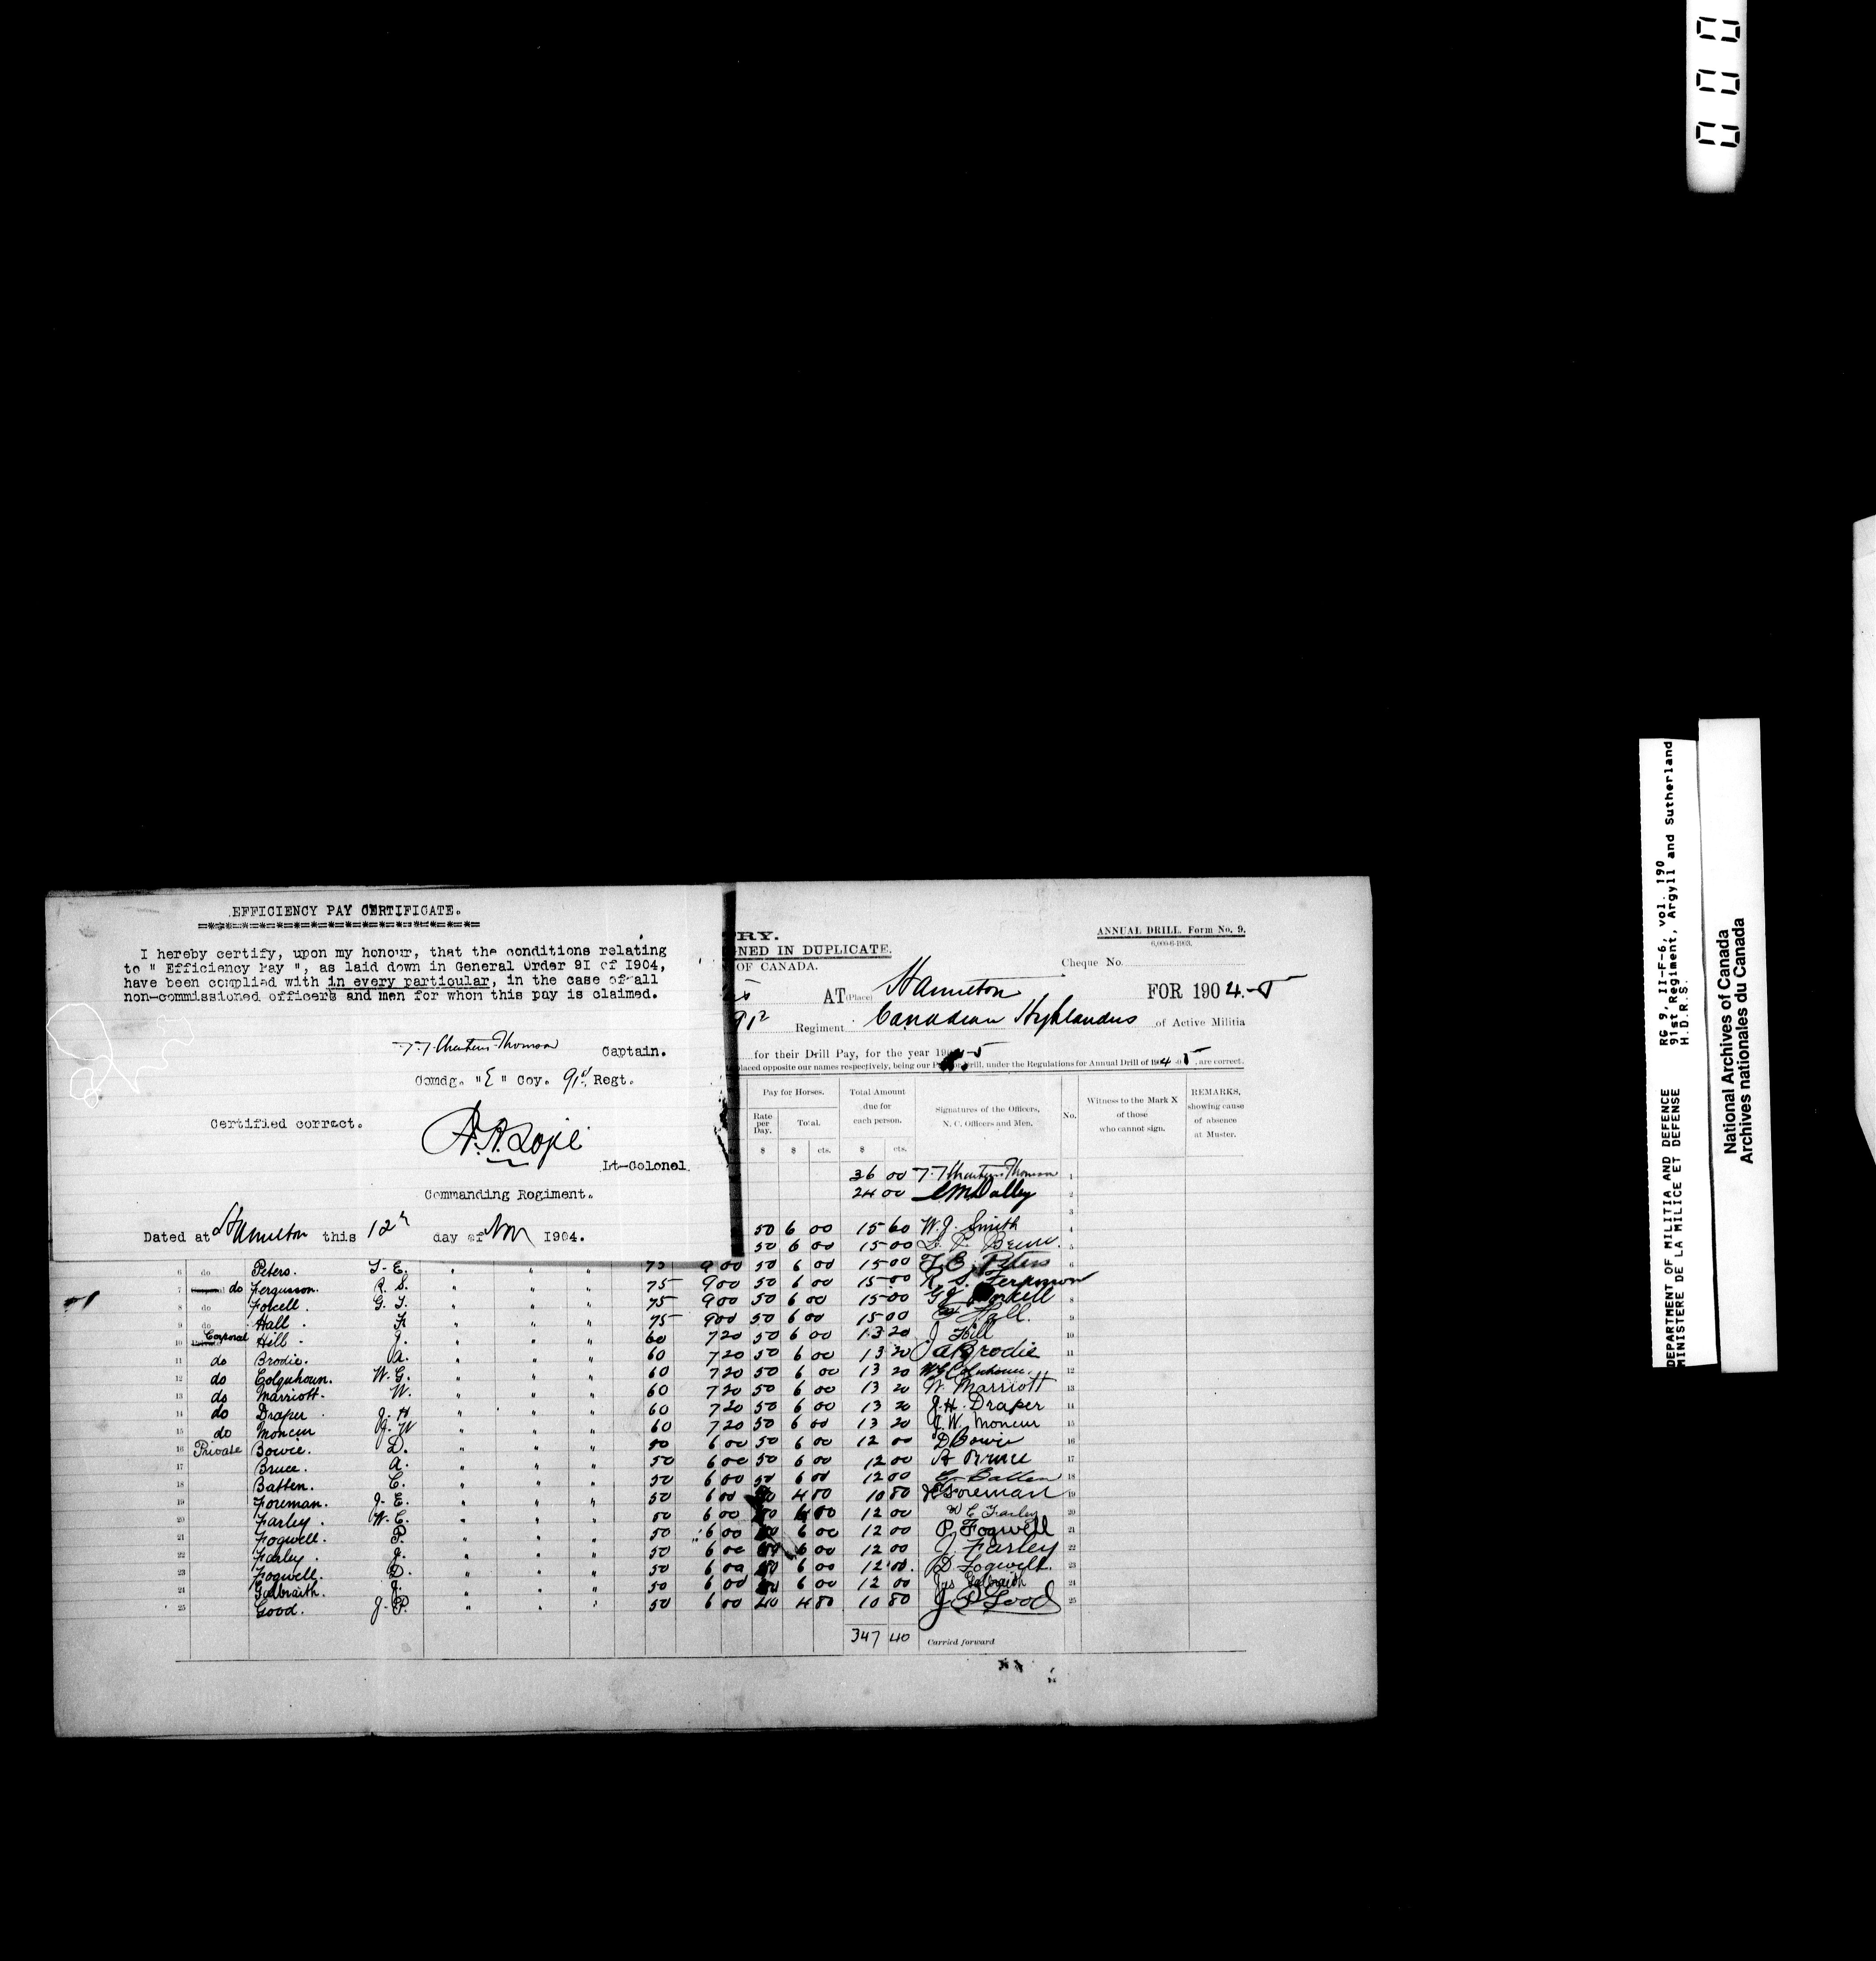 EFFICIENCY PAY CERTIFICATE.
I hereby certify, upon my honour, that the conditions relating
to " Efficiency Pay ", as laid down in General Order 91 of 1904,
have been complied with in every particular, in the case of all
non-commissioned officers and men for whom this pay is claimed.
Captain.
Comdg. "E" Coy. 91st Regt.
Certified correct.
Lt-Colonel
Commanding Regiment.
Dated at Hamilton this 12th day of Nov 1904.
RY.
NED IN DUPLICATE.
OF CANADA.
ANNUAL DRILL. Form No. 9.
Cheque No.
AT (Place) Hamilton FOR 1904-5
91st Regiment Canadian Highlanders of Active Militia
for their Drill Pay, for the year
placed opposite our names respectively, being our Pay for Drill, under the Regulations for Annual Drill of 1904 5, are correct.
Pay for Horses. Total Amount due for each person. Signatures of the Officers, N. C. Officers and Men. No. Witness to the Mark X of those who cannot sign. REMARKS, showing cause of absence at Muster.
Rate per Day. Total.
$ $ cts. $ cts.
36 00 1
24 00 2
3
50 6 00 15 60 W. J. Smith 4
50 6 00 15 00 5
6 do Peters. T. E. " " " 75 9 00 50 6 00 15 00 T. E. Peters 6
7 do Fergusson. R. S. " " " 75 9 00 50 6 00 15 00 R. S. Fergusson
8 do Forcell. G. J. " " " 75 9 00 50 6 00 15 00 8
9 do Hall. " " " 75 9 00 50 6 00 15 00 Hall. 9
10 Corporal Hill J. " " " 60 7 20 50 6 00 13 20 J Hill 10
11 do Brodie. A. " " " 60 7 20 50 6 00 13 20 A Brodie 11
12 do Colquhoun. W. G. " " " 60 7 20 50 6 00 13 20 W G Colquhoun 12
13 do Marriott. W. " " " 60 7 20 50 6 00 13 20 W. Marriott 13
14 do Draper J. H " " " 60 7 20 50 6 00 13 20 J. H. Draper 14
15 do Moncur J. W " " " 60 7 20 50 6 00 13 20 J. W. Moncur 15
16 Private Bowie. D. " " " 50 6 00 50 6 00 12 00 D Bowie 16
17 Bruce. A. " " " 50 6 00 50 6 00 12 00 A Bruce 17
18 Batten. C. " " " 50 6 00 50 6 00 12 00 C. Batten 18
19 Foreman. J. E. " " " 50 6 00 40 4 80 10 80 Foreman 19
20 Farley. W. C. " " " 50 6 00 6 00 12 00 W C Farley 20
21 Fogwell. P. " " " 50 6 00 6 00 12 00 P. Fogwell 21
22 Farley. J. " " " 50 6 00 6 00 12 00 J. Farley 22
23 Fogwell. D. " " " 50 6 00 6 00 12 00. D. Fogwell. 23
24 Galbraith. J. " " " 50 6 00 6 00 12 00 Jas Galbraith 24
25 Good. J. P. " " " 50 6 00 40 4 80 10 80 J P Good 25
347 40 Carried forward
000
RG 9, II-F-6, vol. 190
91st Regiment, Argyll and Sutherland
H.D.R.S.
DEPARTMENT OF MILITIA AND DEFENCE
MINISTERE DE LA MILICE ET DEFENSE
National Archives of Canada
Archives nationales du Canada